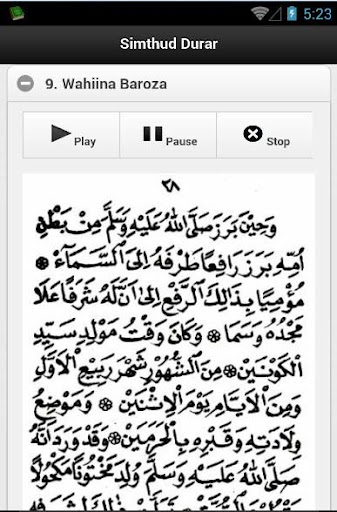 5:23
Simthud Durar
9. Wahiina Baroza
Play
Pause
Stop
٢٨
وَحِيْنَ بَرَزَ صَلَّى اللهُ عَلَيْهِ وَسَلَّمَ مِنْ بَطْنِ
اُمِّهِ بَرَزَ رَافِعًا طَرْفَهُ اِلَى السَّمَآءِ ۞
مُؤْمِيًا بِذٰلِكَ الرَّفْعِ اِلَى اَنَّ لَهُ شَرَفًا عَلَا
مَجْدُهُ وَسَمَا ۞ وَكَانَ وَقْتُ مَوْلِدِ سَيِّدِ
الْكَوْنَيْنِ ۞ مِنَ الشُّهُوْرِ شَهْرَ رَبِيْعِ الْاَوَّلِ
وَمِنَ الْاَيَّامِ يَوْمَ الْاِثْنَيْنِ ۞ وَمَوْضِعُ
وِلَادَتِهِ وَقَبْرِهِ بِالْحَرَمَيْنِ ۞ وَقَدْ وَرَدَ اَنَّهُ
صَلَّى اللهُ عَلَيْهِ وَسَلَّمَ وُلِدَ مَخْتُوْنًا مَكْحُوْلًا